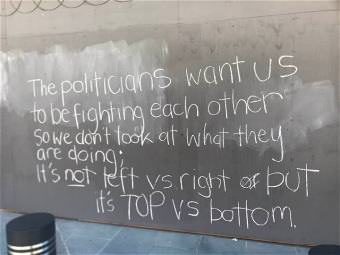 The politicians want us
to be fighting each other
so we don't look at what they
are doing;
It's not left vs right but
it's TOP vs bottom.